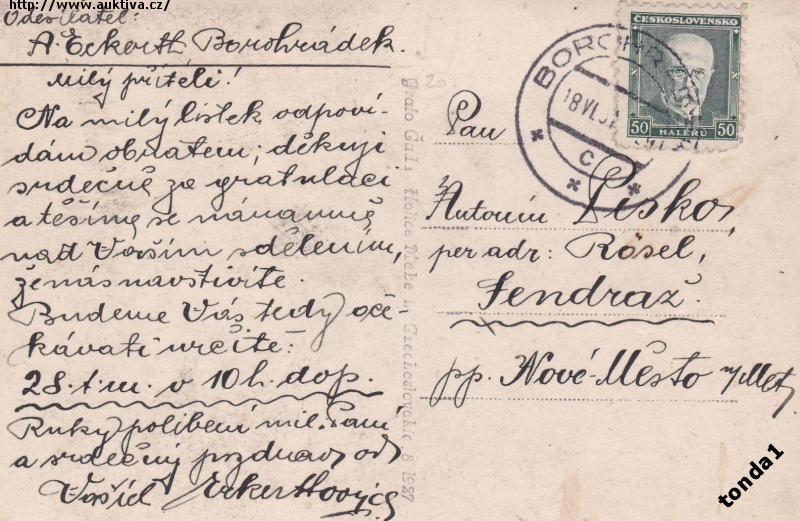 http://www.auktiva.cz/
Odesílatel:
A. Eckerth, Borohrádek.
Milý příteli!
Na milý lístek odpoví-
dám obratem; děkuji
srdečně za gratulaci
a těšíme se náramně
nad Vaším sdělením,
že nás navštívíte.
Budeme Vás tedy oče-
kávati určitě:
28. t. m. v 10 h. dop.
Ruky políbení mil. Paní
a srdečný pozdrav od
Vašich Eckerthových
Grafo Čuda Holice Made in Czechoslovakia 8 1937
20
ČESKOSLOVENSKO
50 HALÉŘŮ 50
BOROHRÁDEK
18.VI.
C
Pan
Antonín Piskoř,
per adr: Rösel,
Sendraž.
pp. Nové-Město n/Met.
tonda1